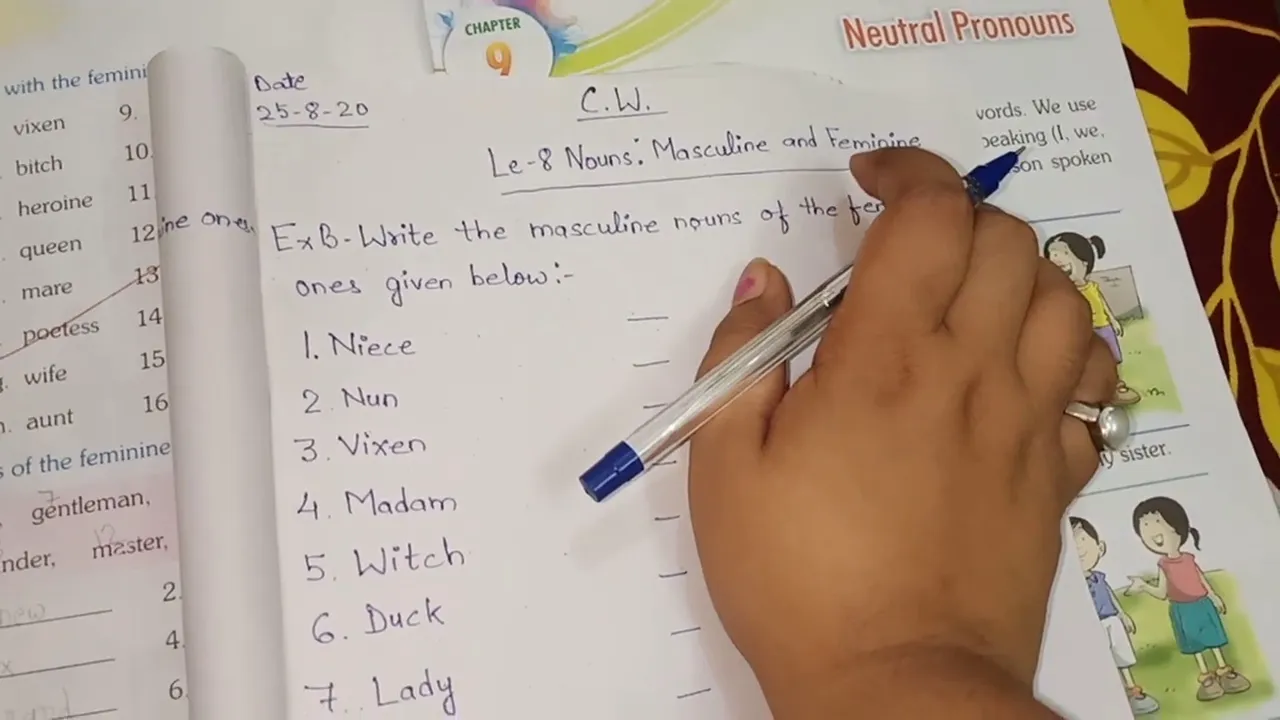 with the femini
vixen 9.
bitch 10.
heroine 11
queen 12
mare 13
poetess 14
wife 15
aunt 16
s of the feminine
gentleman,
nder, master,
2.
4.
6.
ine ones.
CHAPTER
9
Neutral Pronouns
Date
25-8-20
C.W.
Le-8 Nouns: Masculine and Feminine
Ex B-Write the masculine nouns of the fe
ones given below:-
1. Niece —
2. Nun —
3. Vixen —
4. Madam —
5. Witch —
6. Duck —
7. Lady —
words. We use
peaking (I, we,
son spoken
y sister.